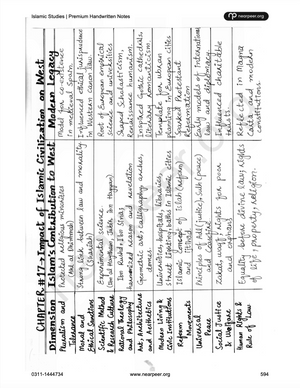 Islamic Studies | Premium Handwritten Notes
nearpeer.org
CHAPTER #17 → Impact of Islamic Civilization on West
Dimension
Islam's Contribution to West
Modern Legacy
Toleration and Coexistence
Protected religious minorities
Model for co-existence in medieval Spain
Moral and Ethical Sanctions
Strong link between law and morality (Shariah)
Influenced ethical jurisprudence in Western canon law
Scientific Method & Research Culture
Experimental science
Root of European empirical sciences and universities
Rational Theology and Philosophy
Ibn Rushd + Ibn Sina; harmonized reason and revelation
Shaped Scholasticism, Renaissance humanism
Art, Architecture and Aesthetics
Geometric art, calligraphy, arches, domes
Modern Living & Civic Institutions
Universities, hospitals, libraries, street lighting, baths in Islamic cities
Template for urban planning in European cities
Reform Movements
Islamic concept of Islah (reform) and Ijtihad
Sparked Protestant Reformation
Universal Peace
Principles of Adl (justice), Sulh (peace)
Early models of International law and diplomacy
Social Justice & Welfare
Zakat, waqf
Influenced charitable
Human Rights & Rule of Law
Equality before divine law; rights of life, property, religion.
Reflected in Magna Carta and modern constitutions.
0311-1444734
www.nearpeer.org
594